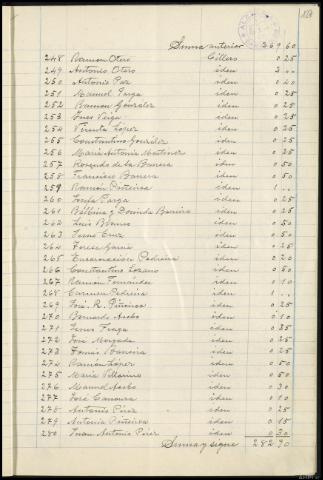 Suma anterior 269 60
248 Ramon Otero Cillero 0 25
249 Antonio Otero iden 3 ..
250 Antonio Paz iden 0 40
251 Manuel Parga iden 0 25
252 Ramon González iden 0 25
253 Ines Veiga iden 0 25
254 Vicenta López iden 0 25
255 Constantino González iden 0 25
256 Maria Antonia iden 0 25
257 Rosendo de la Barrera iden 0 50
258 Francisco Barrera iden 0 50
259 Ramon Piñeiroa iden 1 ..
260 Josefa Parga iden 0 25
261 Balbina y Dorinda Barrera iden 0 25
262 Luis Blanco iden 0 50
263 Jesus Cruz iden 0 50
264 Teresa Garcia iden 0 25
265 Encarnación Pedreira iden 0 20
266 Constantino Lozano iden 0 50
267 Ramon Fernández iden 0 10
268 Carmen Pedreira iden 1 ..
269 José R. Piñeiroa iden 0 25
270 Bernardo iden 0 10
271 Jesus Fraga iden 0 25
272 José Morgade iden 0 25
273 Tomas Barrera iden 0 25
274 Ramon López iden 0 50
275 Maria Villarino iden 0 50
276 Manuel iden 0 30
277 José Canoura iden 0 10
278 Antonio Pérez iden 0 25
279 Antonia Piñeiroa iden 0 15
280 Juan Antonio Pérez iden 0 30
Suma y sigue 282 90